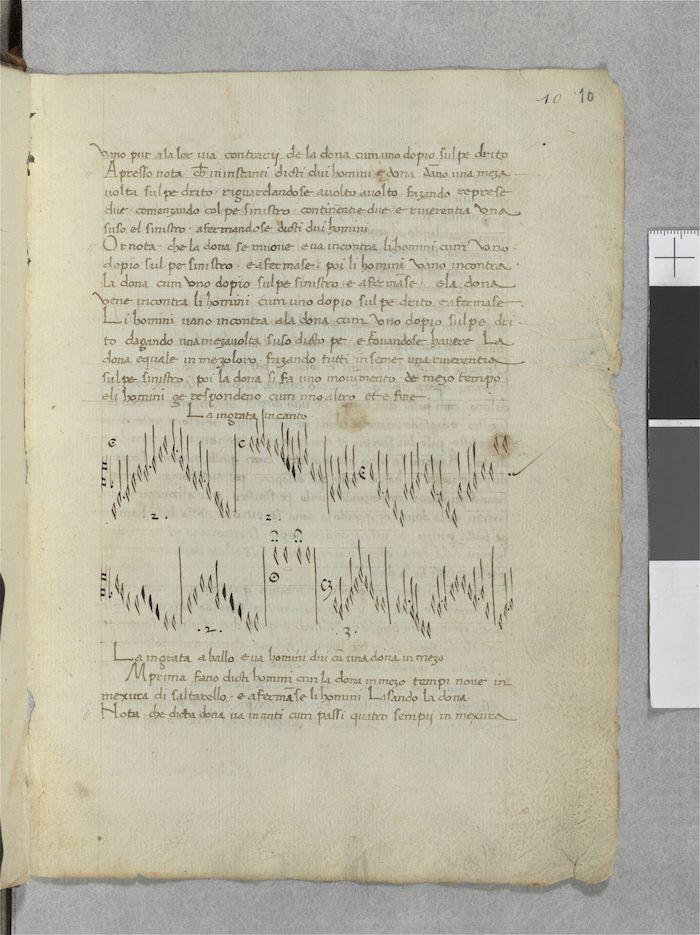 10 10
vano pur ala lor via contrarij de la dona cum uno dopio sul pe drito
Apresso nota ch̄ in instanti dicti dui homini e dona dano una meza
volta sul pe drito riguardandose avolto avolto fazando represe
due comenzando col pe sinistro continentie due e riverentia una
suso el sinistro afermandose dicti dui homini
Or nota che la dona se muove e va incontra li homini cum uno
dopio sul pe sinistro e afermase poi li homini vano incontra
la dona cum uno dopio sul pe sinistro e afermāse e la dona
vene incontra li homini cum uno dopio sul pe drito e afermase
Li homini vano incontra ala dona cum uno dopio sul pe dri
to dagando una meza volta suso dicto pe e trovandose havere La
dona equale in mezo loro fazando tutti inseme una riverentia
sul pe sinistro poi la dona si fa uno movimento de mezo tempo
e li homini ge respondeno cum uno altro et e fine
La ingrata in canto
2 2
2 3
La ingrata a ballo e va homini dui cū una dona in mezo
M prima fano dicti homini con la dona in mezo tempi nove in
mexura di saltarello e afermāse li homini Lasando la dona
Nota che dicta dona va inanti cum passi quatro sempij in mexura